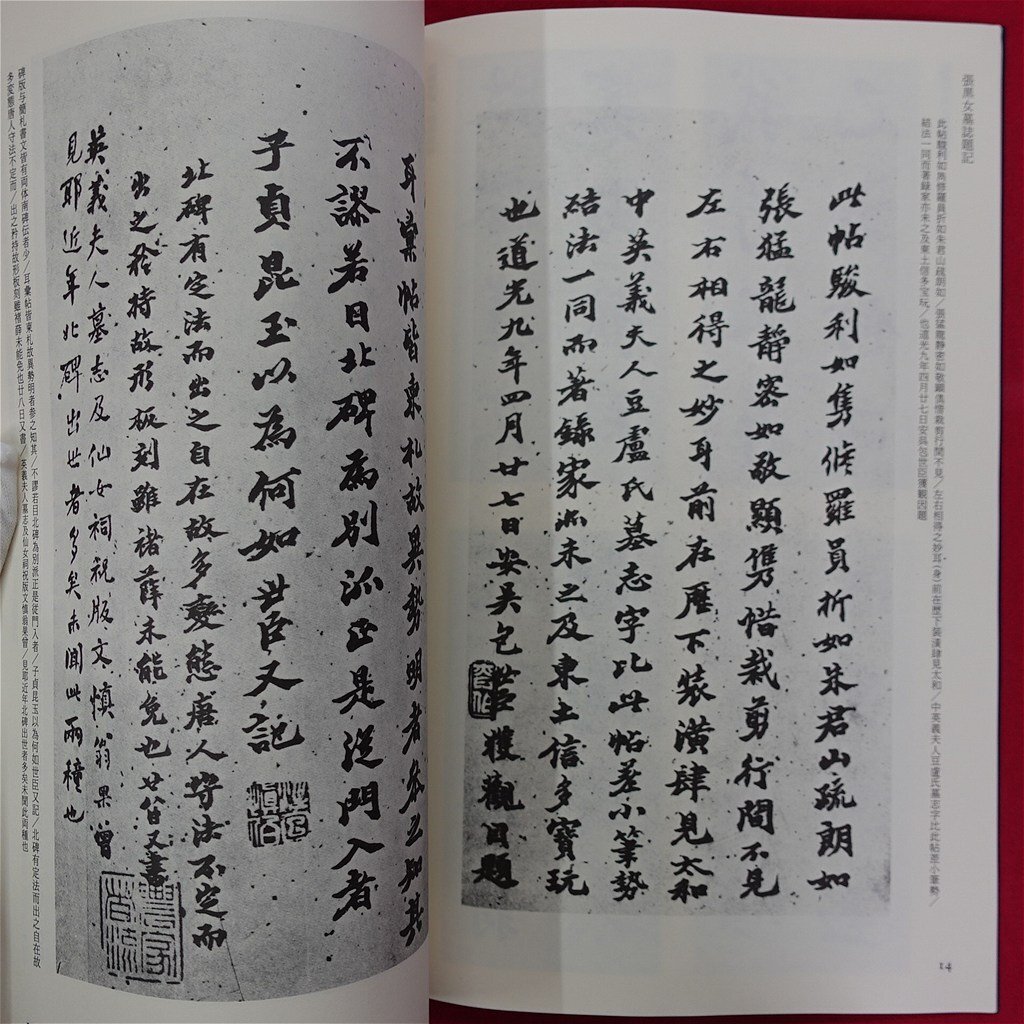 張黒女墓誌題記
此帖駿利如雋脩羅員折如朱君山疏朗如／張猛龍静密如敬顯儁惜裁剪行間不見／左右相得之妙耳(身)前在歴下装潢肆見太和／中英義夫人豆盧氏墓志字比此帖差小筆勢／
結法一同而著録家亦未之及東土信多宝玩／也道光九年四月廿七日安呉包世臣獲観因題
此帖駿利如雋脩羅員折如朱君山疏朗如
張猛龍靜密如敬顯雋惜裁剪行間不見
左右相得之妙耳前在歷下裝潢肆見太和
中英義夫人豆盧氏墓志字比此帖差小筆勢
結法一同而著錄家亦未之及東土信多寶玩
也道光九年四月廿七日安吳包世臣獲觀因題
14
耳彙帖皆柬札故異勢明者參之知其
不謬若目北碑為別派正是從門入者
子貞昆玉以為何如世臣又記
北碑有定法而出之自在故多變態唐人守法不定而
出之矜持故形板刻雖褚薛未能免也廿八日又書
英義夫人墓志及仙女祠祝版文慎翁果曾
見耶近年北碑出世者多矣未聞此兩種也
碑版与簡札書文皆有両体南碑伝者少／耳彙帖皆柬札故異勢明者参之知其／不謬若目北碑為別派正是従門入者／子貞昆玉以為何如世臣又記／北碑有定法而出之自在故
多変態唐人守法不定而／出之矜持故形板刻雖褚薛未能免也廿八日又書／英義夫人墓志及仙女祠祝版文慎翁果曾／見耶近年北碑出世者多矣未聞此両種也